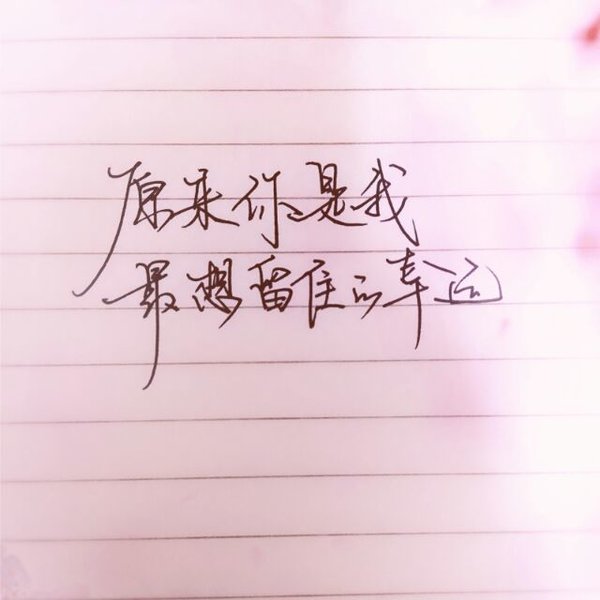 原来你是我
最想留住的幸运